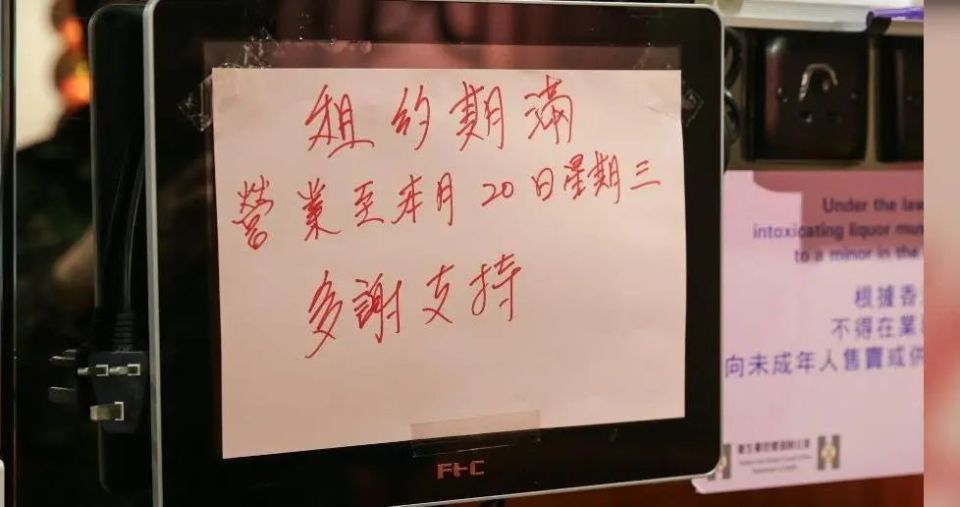 租約期滿
營業至本月20日星期三
多謝支持
FHC
Under the law
intoxicating liquor mus
to a minor in the
根據香
不得在業
向未成年人售賣或供